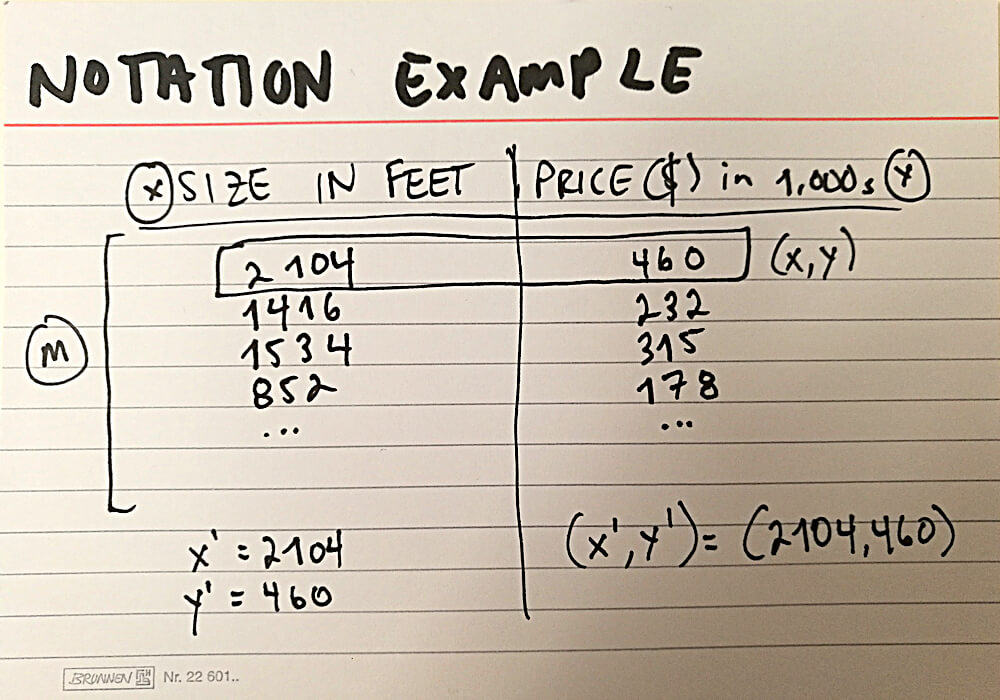 NOTATION EXAMPLE
x SIZE IN FEET PRICE ($) in 1,000s y
2104 460 (x,y)
1416 232
m 1534 315
852 178
... ...
x' = 2104 (x', y') = (2104,460)
y' = 460
BRUNNEN Nr. 22 601..